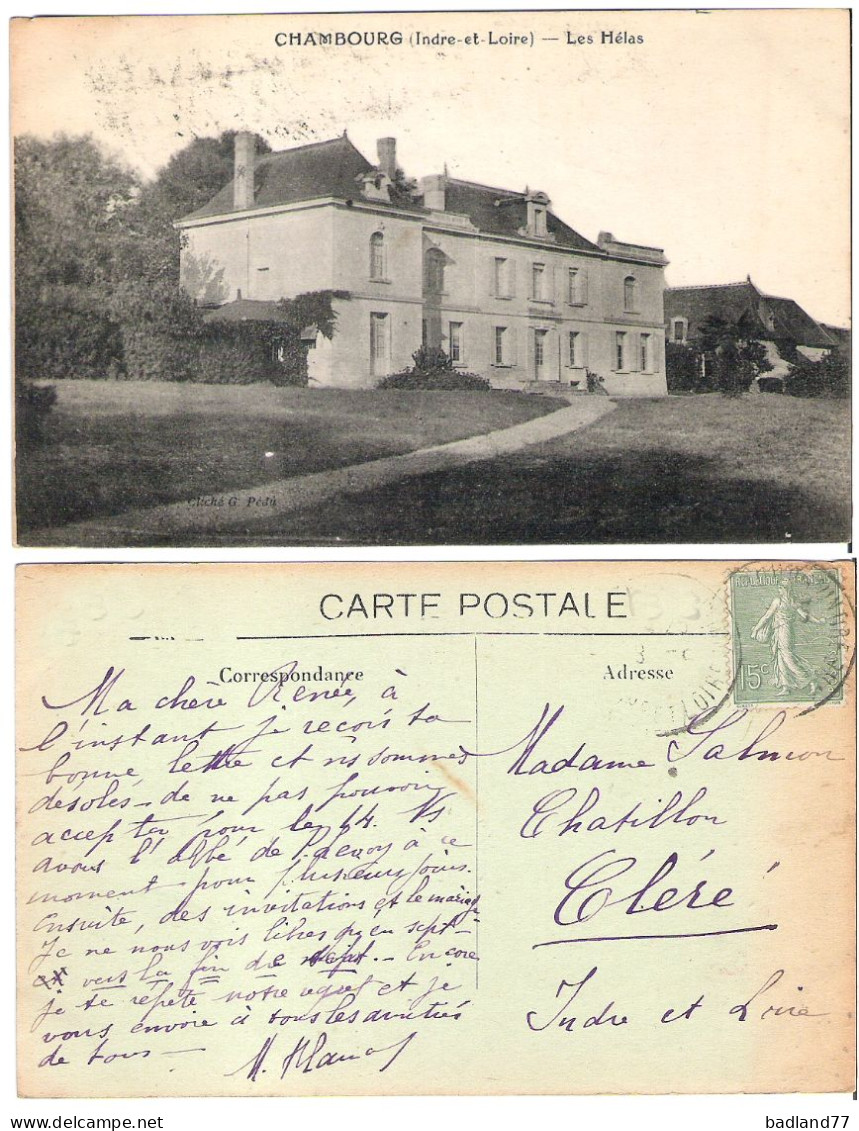 CHAMBOURG (Indre-et-Loire) — Les Hélas
Cliché G. Pédu
CARTE POSTALE
Correspondance
Adresse
15c
Ma chère Renée, à
l'instant je reçois ta
bonne lettre et ns sommes
désolés de ne pas pouvoir
accepter pour le 14. Ns
avons l'abbé de à ce
moment pour plusieurs jours.
Ensuite, des invitations et le mariage
Je ne nous vois libres qu'en sept
vers la fin de sept. – Encore
je te répète notre regret et je
vous envoie à tous les amitiés
de tous —
M.
Madame Salmon
Chatillon
Cléré
Indre et Loire
badland77